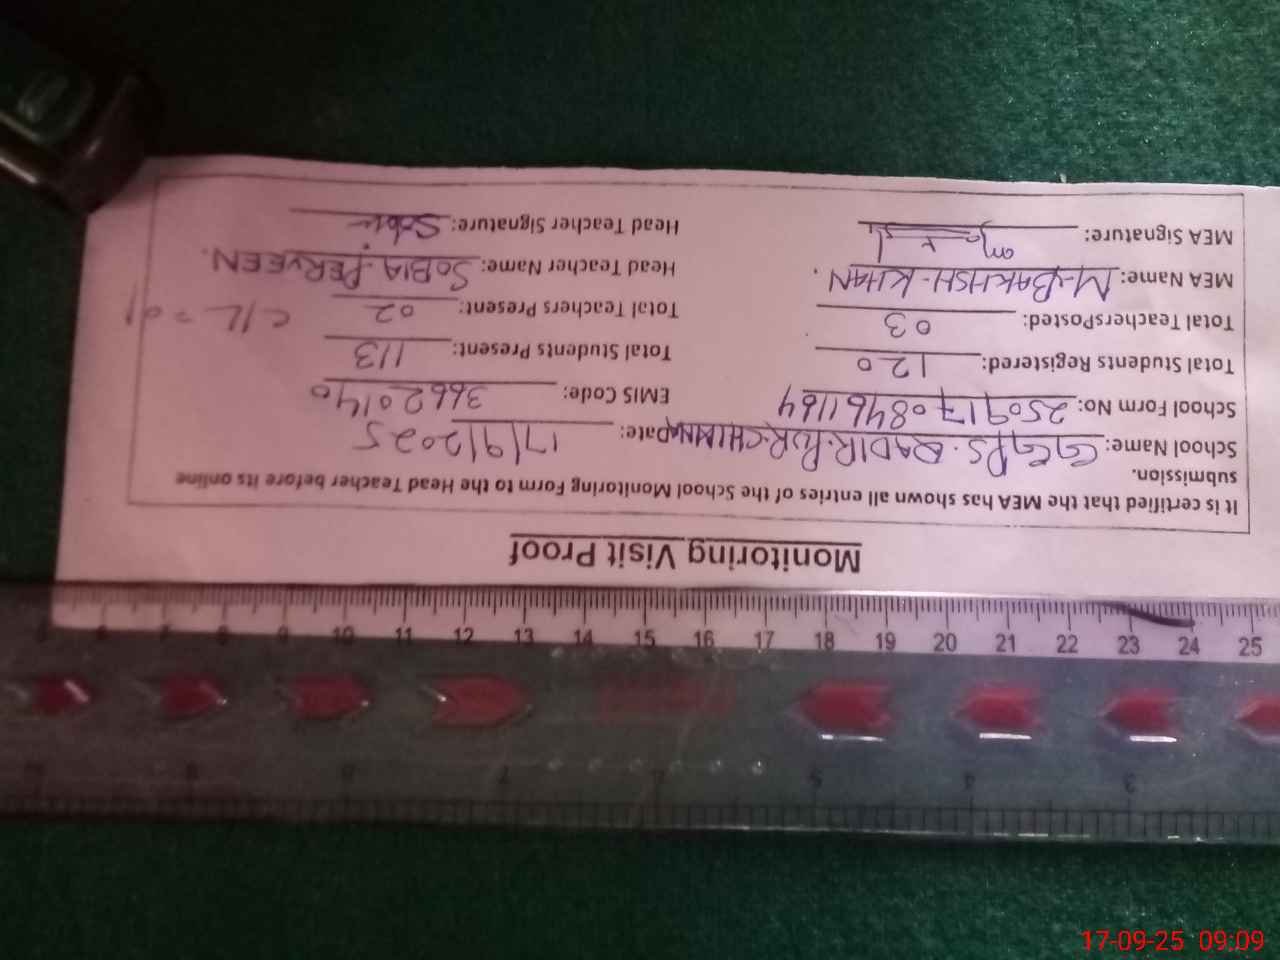 Monitoring Visit Proof
It is certified that the MEA has shown all entries of the School Monitoring Form to the Head Teacher before its online
submission.
School Name: GGPS. QADIR. PUR. CHIMNA Date: 17/9/2025
School Form No: 25091708461164 EMIS Code: 36620140
Total Students Registered: 120 Total Students Present: 113
Total TeachersPosted: 03 Total Teachers Present: 02 C/L = 01
MEA Name: M. BAKHSH. KHAN. Head Teacher Name: SOBIA. PERVEEN.
MEA Signature: Head Teacher Signature: Sobia
5 6 7 8 9 10 11 12 13 14 15 16 17 18 19 20 21 22 23 24 25
3 4 5 7 8
17-09-25 09:09